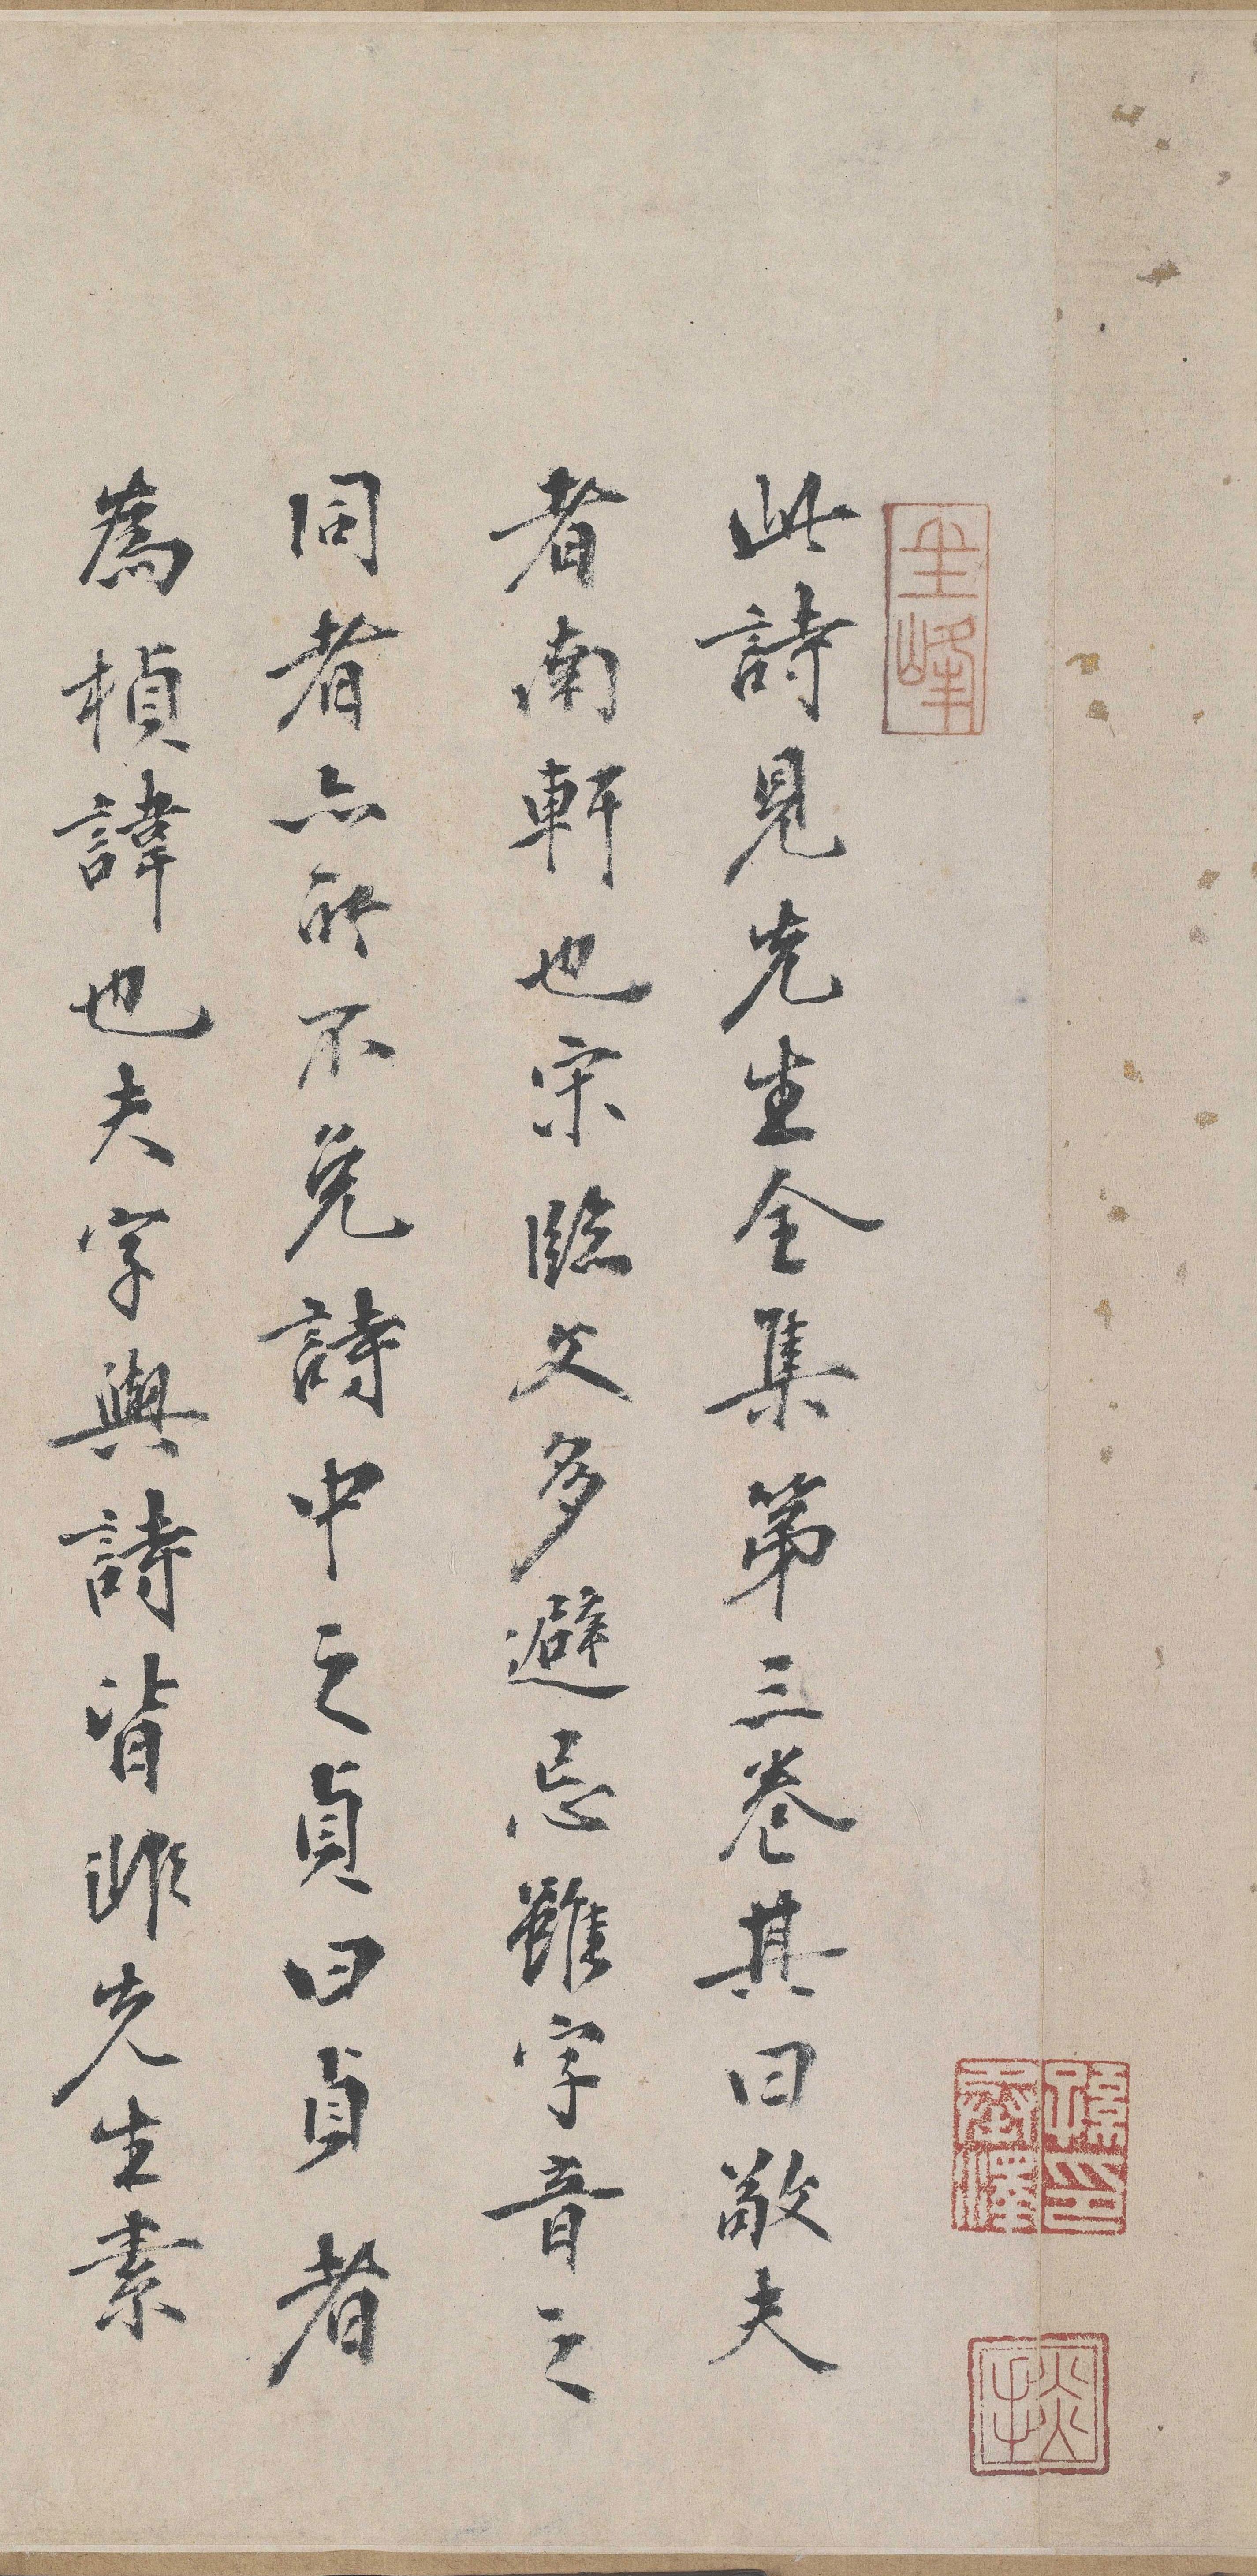 此詩見先生全集第三卷其曰敬夫
者南軒也宋臨文多避忌雖字音之
同者亦所不免詩中之貞曰貞者
為楨諱也夫字與詩皆非先生素